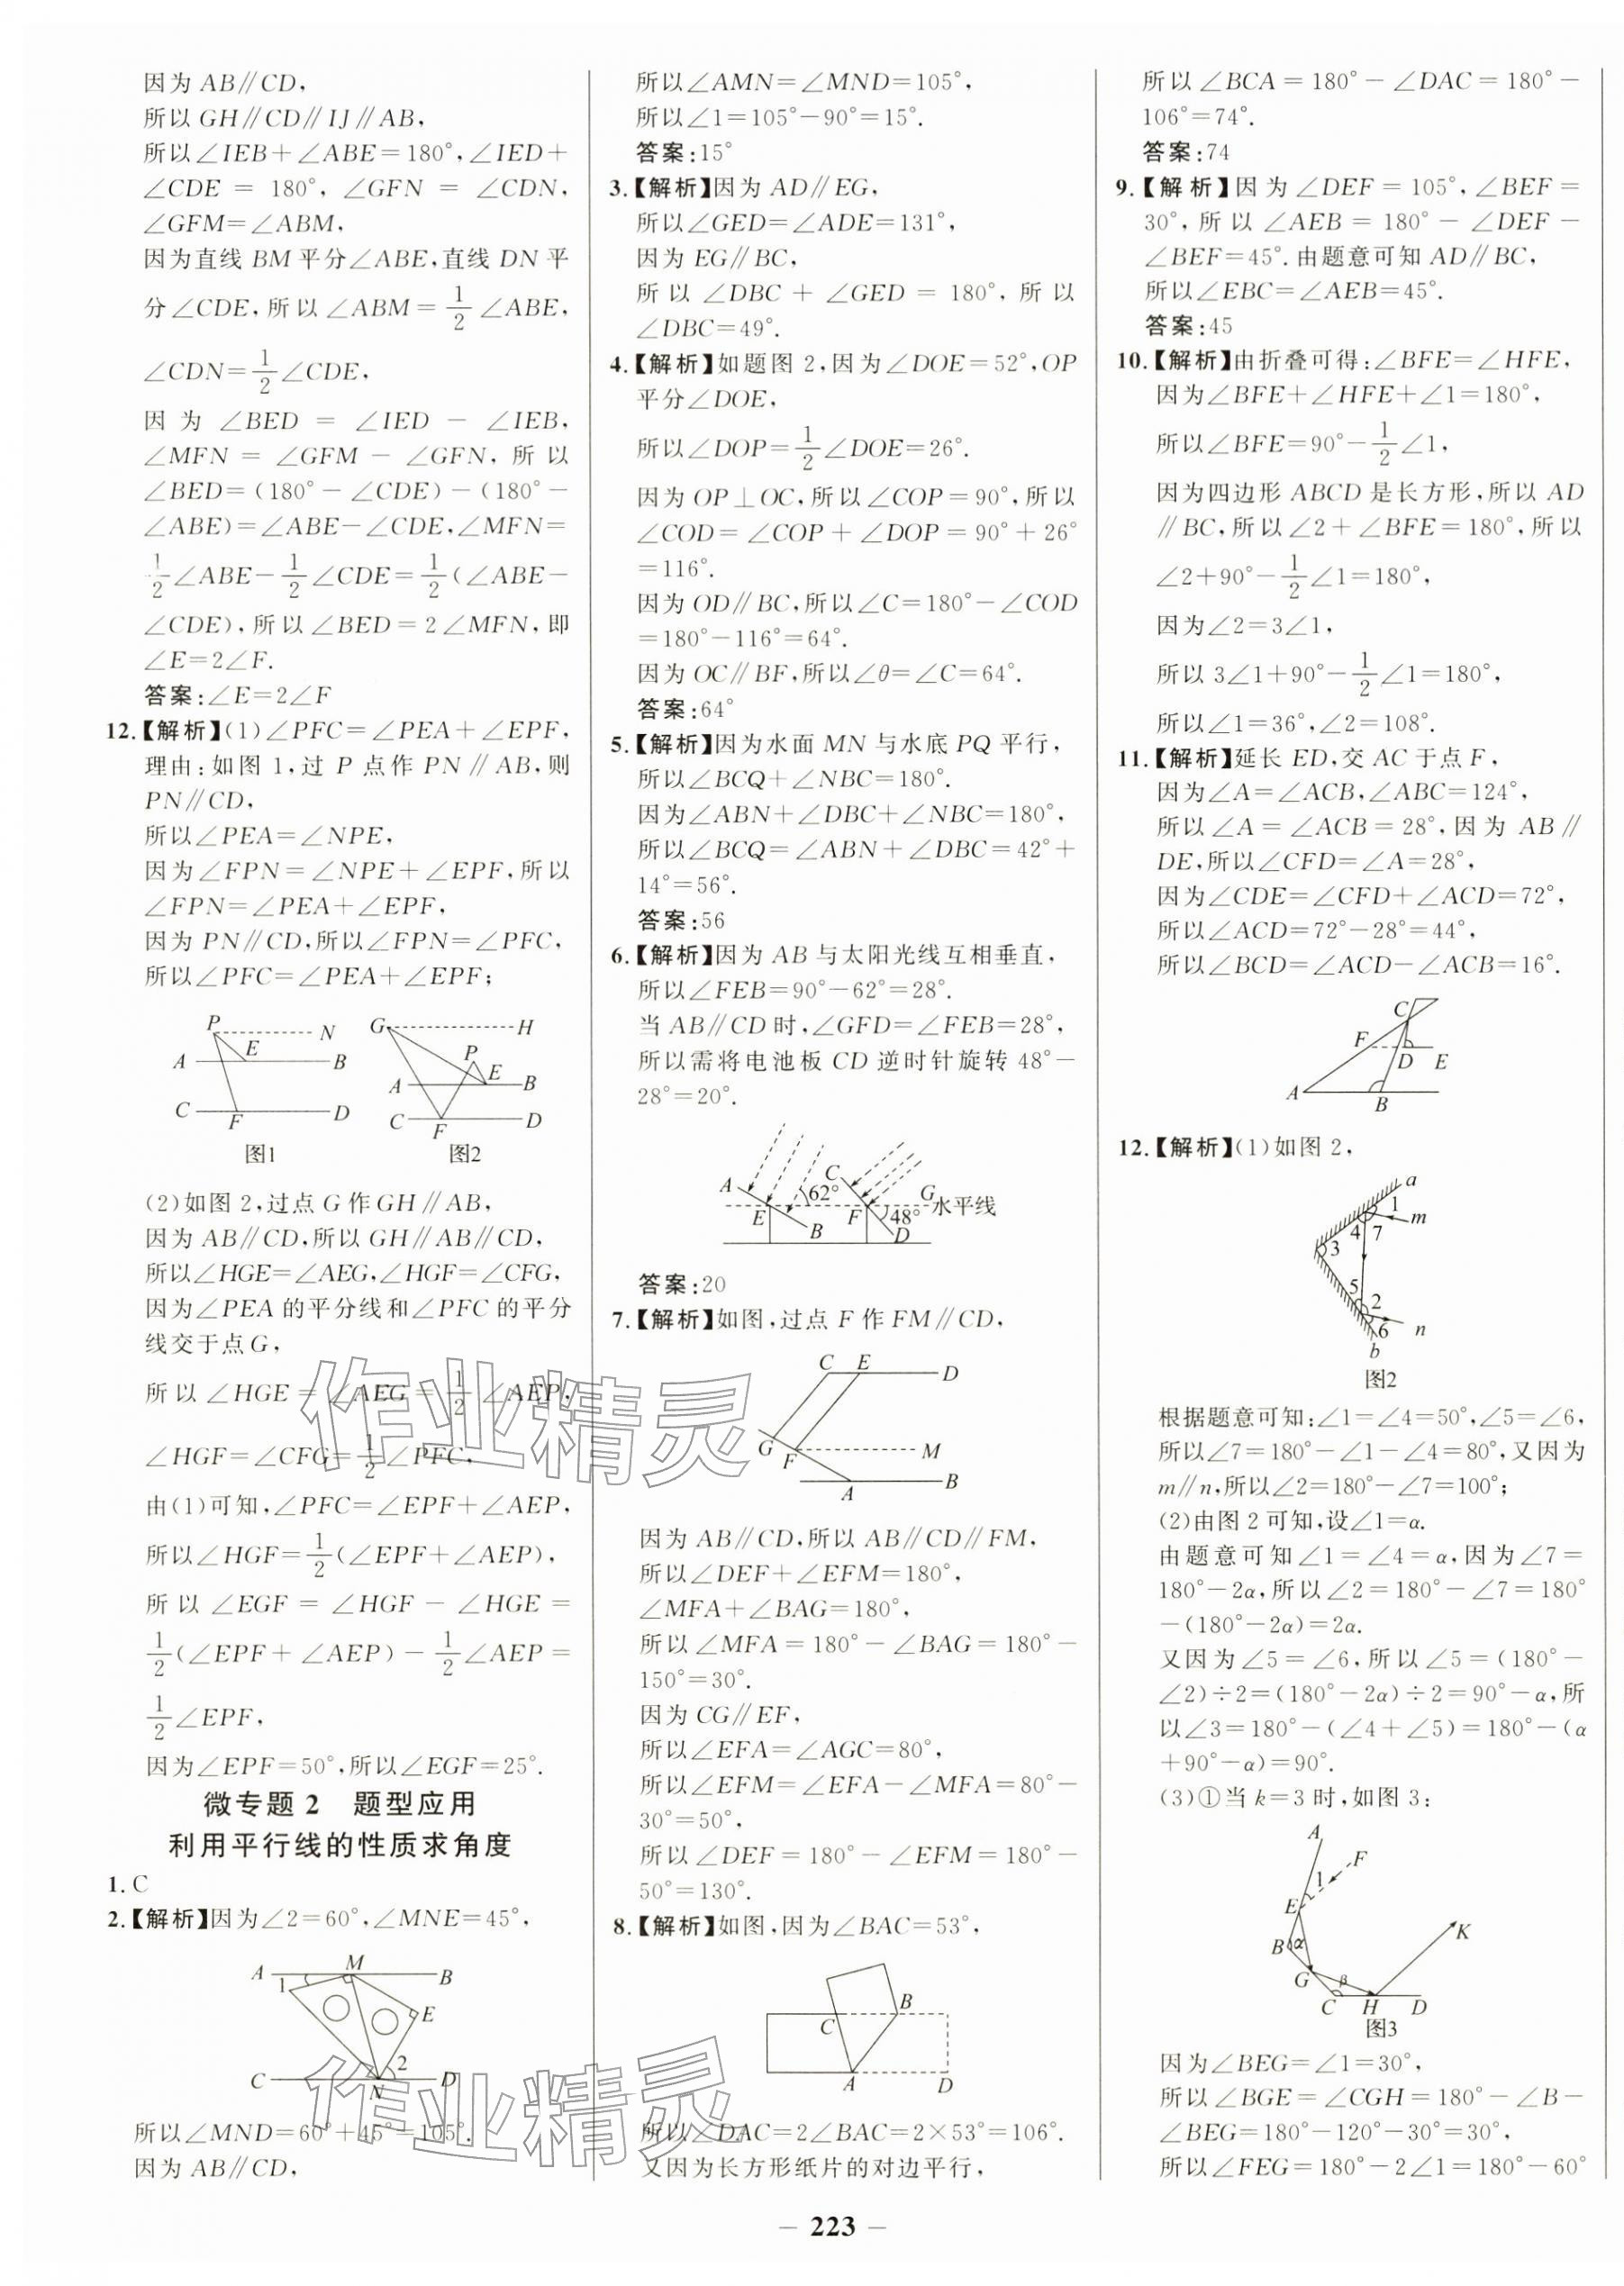 因为 AB∥CD,
所以 GH∥CD∥IJ∥AB,
所以∠IEB+∠ABE=180°,∠IED+
∠CDE = 180°, ∠GFN = ∠CDN,
∠GFM=∠ABM,
因为直线 BM 平分∠ABE,直线 DN 平
分∠CDE,所以∠ABM=1/2∠ABE,
∠CDN=1/2∠CDE,
因为 ∠BED = ∠IED - ∠IEB,
∠MFN = ∠GFM - ∠GFN, 所以
∠BED=(180°-∠CDE)-(180°-
∠ABE)=∠ABE-∠CDE,∠MFN=
1/2∠ABE-1/2∠CDE=1/2(∠ABE-
∠CDE),所以∠BED=2∠MFN,即
∠E=2∠F.
答案:∠E=2∠F
12.【解析】(1)∠PFC=∠PEA+∠EPF,
理由:如图 1,过 P 点作 PN∥AB,则
PN∥CD,
所以∠PEA=∠NPE,
因为∠FPN=∠NPE+∠EPF,所以
∠FPN=∠PEA+∠EPF,
因为 PN∥CD,所以∠FPN=∠PFC,
所以∠PFC=∠PEA+∠EPF;
P N
A E B
C F D
图1
G H
P
A E B
C F D
图2
(2)如图 2,过点 G 作 GH∥AB,
因为 AB∥CD,所以 GH∥AB∥CD,
所以∠HGE=∠AEG,∠HGF=∠CFG,
因为∠PEA 的平分线和∠PFC 的平分
线交于点 G,
所以∠HGE=∠AEG=1/2∠AEP,
∠HGF=∠CFG=1/2∠PFC,
由(1)可知,∠PFC=∠EPF+∠AEP,
所以∠HGF=1/2(∠EPF+∠AEP),
所以 ∠EGF = ∠HGF - ∠HGE =
1/2(∠EPF+∠AEP)-1/2∠AEP=
1/2∠EPF,
因为∠EPF=50°,所以∠EGF=25°.
微专题 2 题型应用
利用平行线的性质求角度
1.C
2.【解析】因为∠2=60°,∠MNE=45°,
A M B
1
E
2
C N D
所以∠MND=60°+45°=105°.
因为 AB∥CD,
所以∠AMN=∠MND=105°,
所以∠1=105°-90°=15°.
答案:15°
3.【解析】因为 AD∥EG,
所以∠GED=∠ADE=131°,
因为 EG∥BC,
所以 ∠DBC + ∠GED = 180°, 所以
∠DBC=49°.
4.【解析】如题图 2,因为∠DOE=52°,OP
平分∠DOE,
所以∠DOP=1/2∠DOE=26°.
因为 OP⊥OC,所以∠COP=90°,所以
∠COD=∠COP+∠DOP=90°+26°
=116°.
因为 OD∥BC,所以∠C=180°-∠COD
=180°-116°=64°.
因为 OC∥BF,所以∠θ=∠C=64°.
答案:64°
5.【解析】因为水面 MN 与水底 PQ 平行,
所以∠BCQ+∠NBC=180°.
因为∠ABN+∠DBC+∠NBC=180°,
所以∠BCQ=∠ABN+∠DBC=42°+
14°=56°.
答案:56
6.【解析】因为 AB 与太阳光线互相垂直,
所以∠FEB=90°-62°=28°.
当 AB∥CD 时,∠GFD=∠FEB=28°,
所以需将电池板 CD 逆时针旋转 48°-
28°=20°.
A 62° C G 水平线
E B F 48° D
答案:20
7.【解析】如图,过点 F 作 FM∥CD,
C E D
G F M
A B
因为 AB∥CD,所以 AB∥CD∥FM,
所以∠DEF+∠EFM=180°,
∠MFA+∠BAG=180°,
所以∠MFA=180°-∠BAG=180°-
150°=30°.
因为 CG∥EF,
所以∠EFA=∠AGC=80°,
所以∠EFM=∠EFA-∠MFA=80°-
30°=50°,
所以 ∠DEF = 180° - ∠EFM = 180° -
50°=130°.
8.【解析】如图,因为∠BAC=53°,
B
C
A D
所以∠DAC=2∠BAC=2×53°=106°.
又因为长方形纸片的对边平行,
所以∠BCA=180°-∠DAC=180°-
106°=74°.
答案:74
9.【解析】因为∠DEF=105°,∠BEF=
30°,所以 ∠AEB = 180° - ∠DEF -
∠BEF=45°.由题意可知 AD∥BC,
所以∠EBC=∠AEB=45°.
答案:45
10.【解析】由折叠可得:∠BFE=∠HFE,
因为∠BFE+∠HFE+∠1=180°,
所以∠BFE=90°-1/2∠1,
因为四边形 ABCD 是长方形,所以 AD
∥BC,所以∠2+∠BFE=180°,所以
∠2+90°-1/2∠1=180°,
因为∠2=3∠1,
所以 3∠1+90°-1/2∠1=180°,
所以∠1=36°,∠2=108°.
11.【解析】延长 ED,交 AC 于点 F,
因为∠A=∠ACB,∠ABC=124°,
所以∠A=∠ACB=28°,因为 AB∥
DE,所以∠CFD=∠A=28°,
因为∠CDE=∠CFD+∠ACD=72°,
所以∠ACD=72°-28°=44°,
所以∠BCD=∠ACD-∠ACB=16°.
C
F D E
A B
12.【解析】(1)如图 2,
a
1
m
4 7
3
5
2
6 n
b
图2
根据题意可知:∠1=∠4=50°,∠5=∠6,
所以∠7=180°-∠1-∠4=80°,又因为
m∥n,所以∠2=180°-∠7=100°;
(2)由图 2 可知,设∠1=α.
由题意可知∠1=∠4=α,因为∠7=
180°-2α,所以∠2=180°-∠7=180°
-(180°-2α)=2α.
又因为∠5=∠6,所以∠5=(180°-
∠2)÷2=(180°-2α)÷2=90°-α,所
以∠3=180°-(∠4+∠5)=180°-(α
+90°-α)=90°.
(3)①当 k=3 时,如图 3:
A
F
1
E
K
B α
G β
C H D
图3
因为∠BEG=∠1=30°,
所以∠BGE=∠CGH=180°-∠B-
∠BEG=180°-120°-30°=30°,
所以∠FEG=180°-2∠1=180°-60°
作业精灵
作业精灵
- 223 -